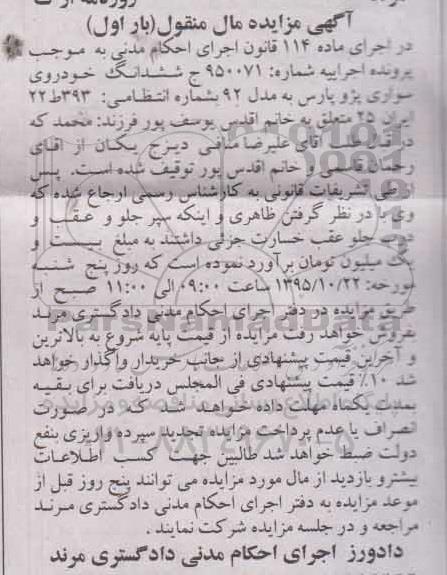 آگهی مزایده مال منقول(بار اول)
در اجرای ماده ۱۱۴ قانون اجرای احکام مدنی به موجب
پرونده اجراییه شماره: ۹۵۰۰۷۱ ج ششدانگ خودروی
سواری پژو پارس به مدل ۹۲ بشماره انتظامی: ۳۹۳ط۲۲
ایران ۲۵ متعلق به خانم اقدس یوسف پور فرزند: محمد که
در قبال طلب آقای علیرضا منافی دیزج یکان از آقای
رحمان قاسمی و خانم اقدس پور توقیف شده است. پس
از طی تشریفات قانونی به کارشناس رسمی ارجاع شده که
وی با در نظر گرفتن ظاهری و اینکه سپر جلو و عقب و
درب جلو عقب خسارت جزئی داشتند به مبلغ بیست و
یک میلیون تومان برآورد نموده است که روز پنج شنبه
مورخه: ۱۳۹۵/۱۰/۲۲ ساعت ۰۹:۰۰ الی ۱۱:۰۰ صبح از
طریق مزایده در دفتر اجرای احکام مدنی دادگستری مرند
بفروش خواهد رفت مزایده از قیمت پایه شروع به بالاترین
و آخرین قیمت پیشنهادی از جانب خریدار واگذار خواهد
شد ۱۰٪ قیمت پیشنهادی فی المجلس دریافت برای بقیه
بمدت یکماه مهلت داده خواهد شد که در صورت
انصراف یا عدم پرداخت مزایده تجدید سپرده واریزی بنفع
دولت ضبط خواهد شد طالبین جهت کسب اطلاعات
بیشتر و بازدید از مال مورد مزایده می توانند پنج روز قبل از
موعد مزایده به دفتر اجرای احکام مدنی دادگستری مرند
مراجعه و در جلسه مزایده شرکت نمایند .
دادورز اجرای احکام مدنی دادگستری مرند